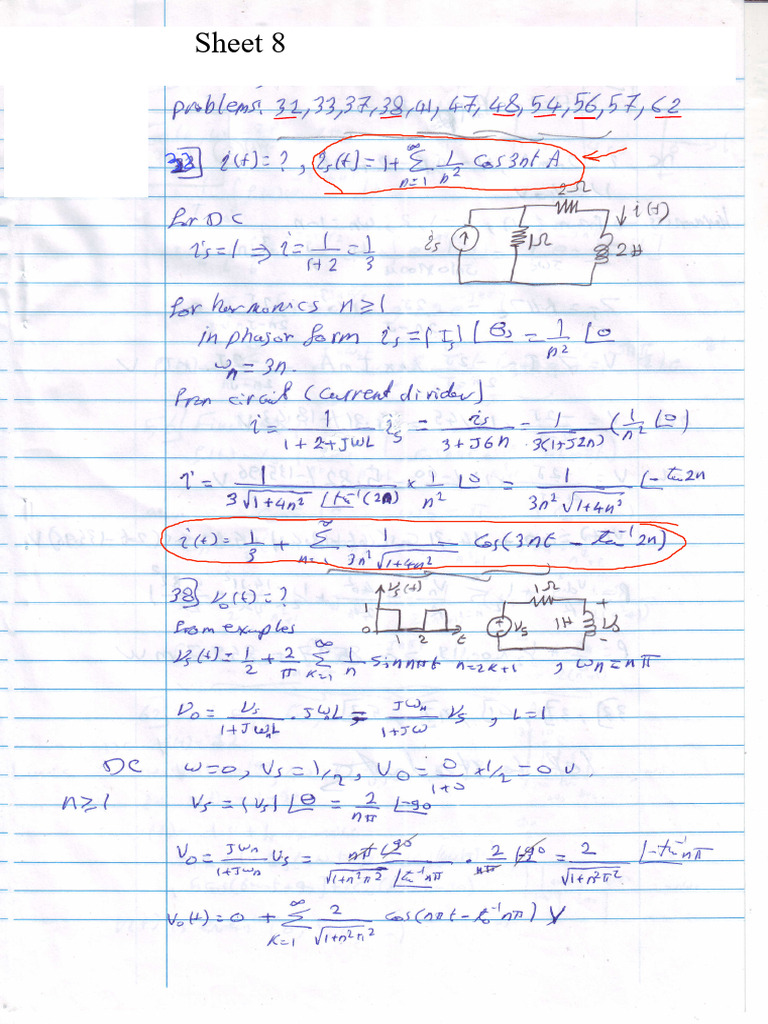 Sheet 8
problems: 31, 33, 37, 38, 41, 47, 48, 54, 56, 57, 62
i(t) = ? , i_s(t) = 1 + ∑_{n=1}^{∞} 1/n² cos 3nt A
2Ω
i(t)
i_s
1Ω
2H
for DC
i_s = 1 ⇒ i = 1/(1+2) = 1/3
for hermonics n ≥ 1
in phasor form i_s = |I_s| ∠θ_s = 1/n² ∠0
ω_n = 3n.
from circuit (current divider)
i = 1/(1+2+jωL) i_s = i_s/(3+j6n) = 1/(3(1+j2n)) (1/n² ∠0)
i = 1/(3√(1+4n²) ∠tan⁻¹(2n)) × 1/n² ∠0 = 1/(3n²√(1+4n²)) ∠-tan⁻¹2n
i(t) = 1/3 + ∑_{n=1}^{∞} 1/(3n²√(1+4n²)) cos(3nt - tan⁻¹ 2n)
38] v_o(t) = ?
v_s(t)
1
0 1 2 t
1Ω
v_s
1H
+
v_o
-
from examples
v_s(t) = 1/2 + 2/π ∑_{k=1}^{∞} 1/n sin nπt n=2k+1 , ω_n = nπ
v_o = v_s/(1+jω_nL) · jω_nL = jω_n/(1+jω) v_s , L=1
DC ω=0, v_s = 1/2, v_o = 0/(1+0) × 1/2 = 0 v.
n≥1 v_s = |v_s| ∠θ = 2/nπ ∠-90
v_o = jω_n/(1+jω_n) v_s = nπ ∠90/(√(1+n²π²) ∠tan⁻¹nπ) · 2/nπ ∠-90 = 2/√(1+n²π²) ∠-tan⁻¹nπ
v_o(t) = 0 + ∑_{k=1}^{∞} 2/√(1+n²π²) cos(nπt - tan⁻¹nπ) V